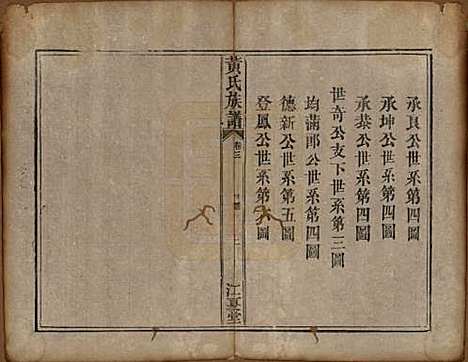 承良公世系第四圖
承坤公世系第四圖
承恭公世系第四圖
世奇公支下世系第三圖
均蒲郎公世系第四圖
德新公世系第五圖
登鳳公世系第六圖
黃氏族譜
卷三
江夏堂